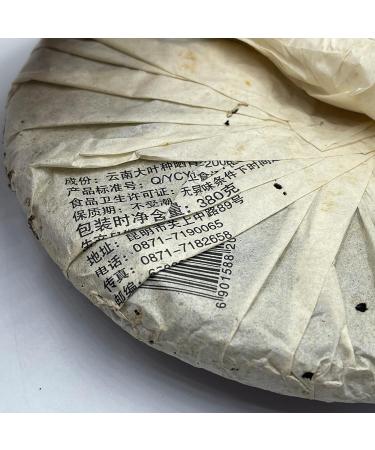 成份：云南大叶种晒青
产品标准号：Q/YCY
食品卫生许可证：
保质期：不受潮 无异味条件下时间
包装时净含量：380克
地址：昆明市关上中路69号
电话：0871-7190065
传真：0871-7182658
邮编
6 901588 120